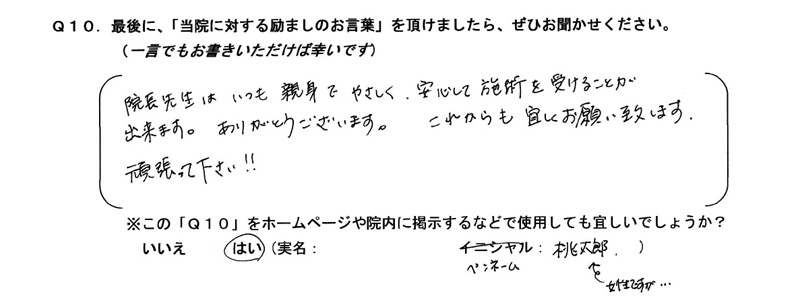 Q10．最後に、「当院に対する励ましのお言葉」を頂けましたら、ぜひお聞かせください。
（一言でもお書きいただけば幸いです）
院長先生は いつも 親身で やさしく、安心して 施術を 受けることが
出来ます。 ありがとうございます。 これからも 宜しくお願い致します.
頑張って下さい!!
※この「Q10」をホームページや院内に掲示するなどで使用しても宜しいでしょうか？
いいえ はい（実名： イニシャル：桃太郎. ）
ペンネーム
女性ですが…